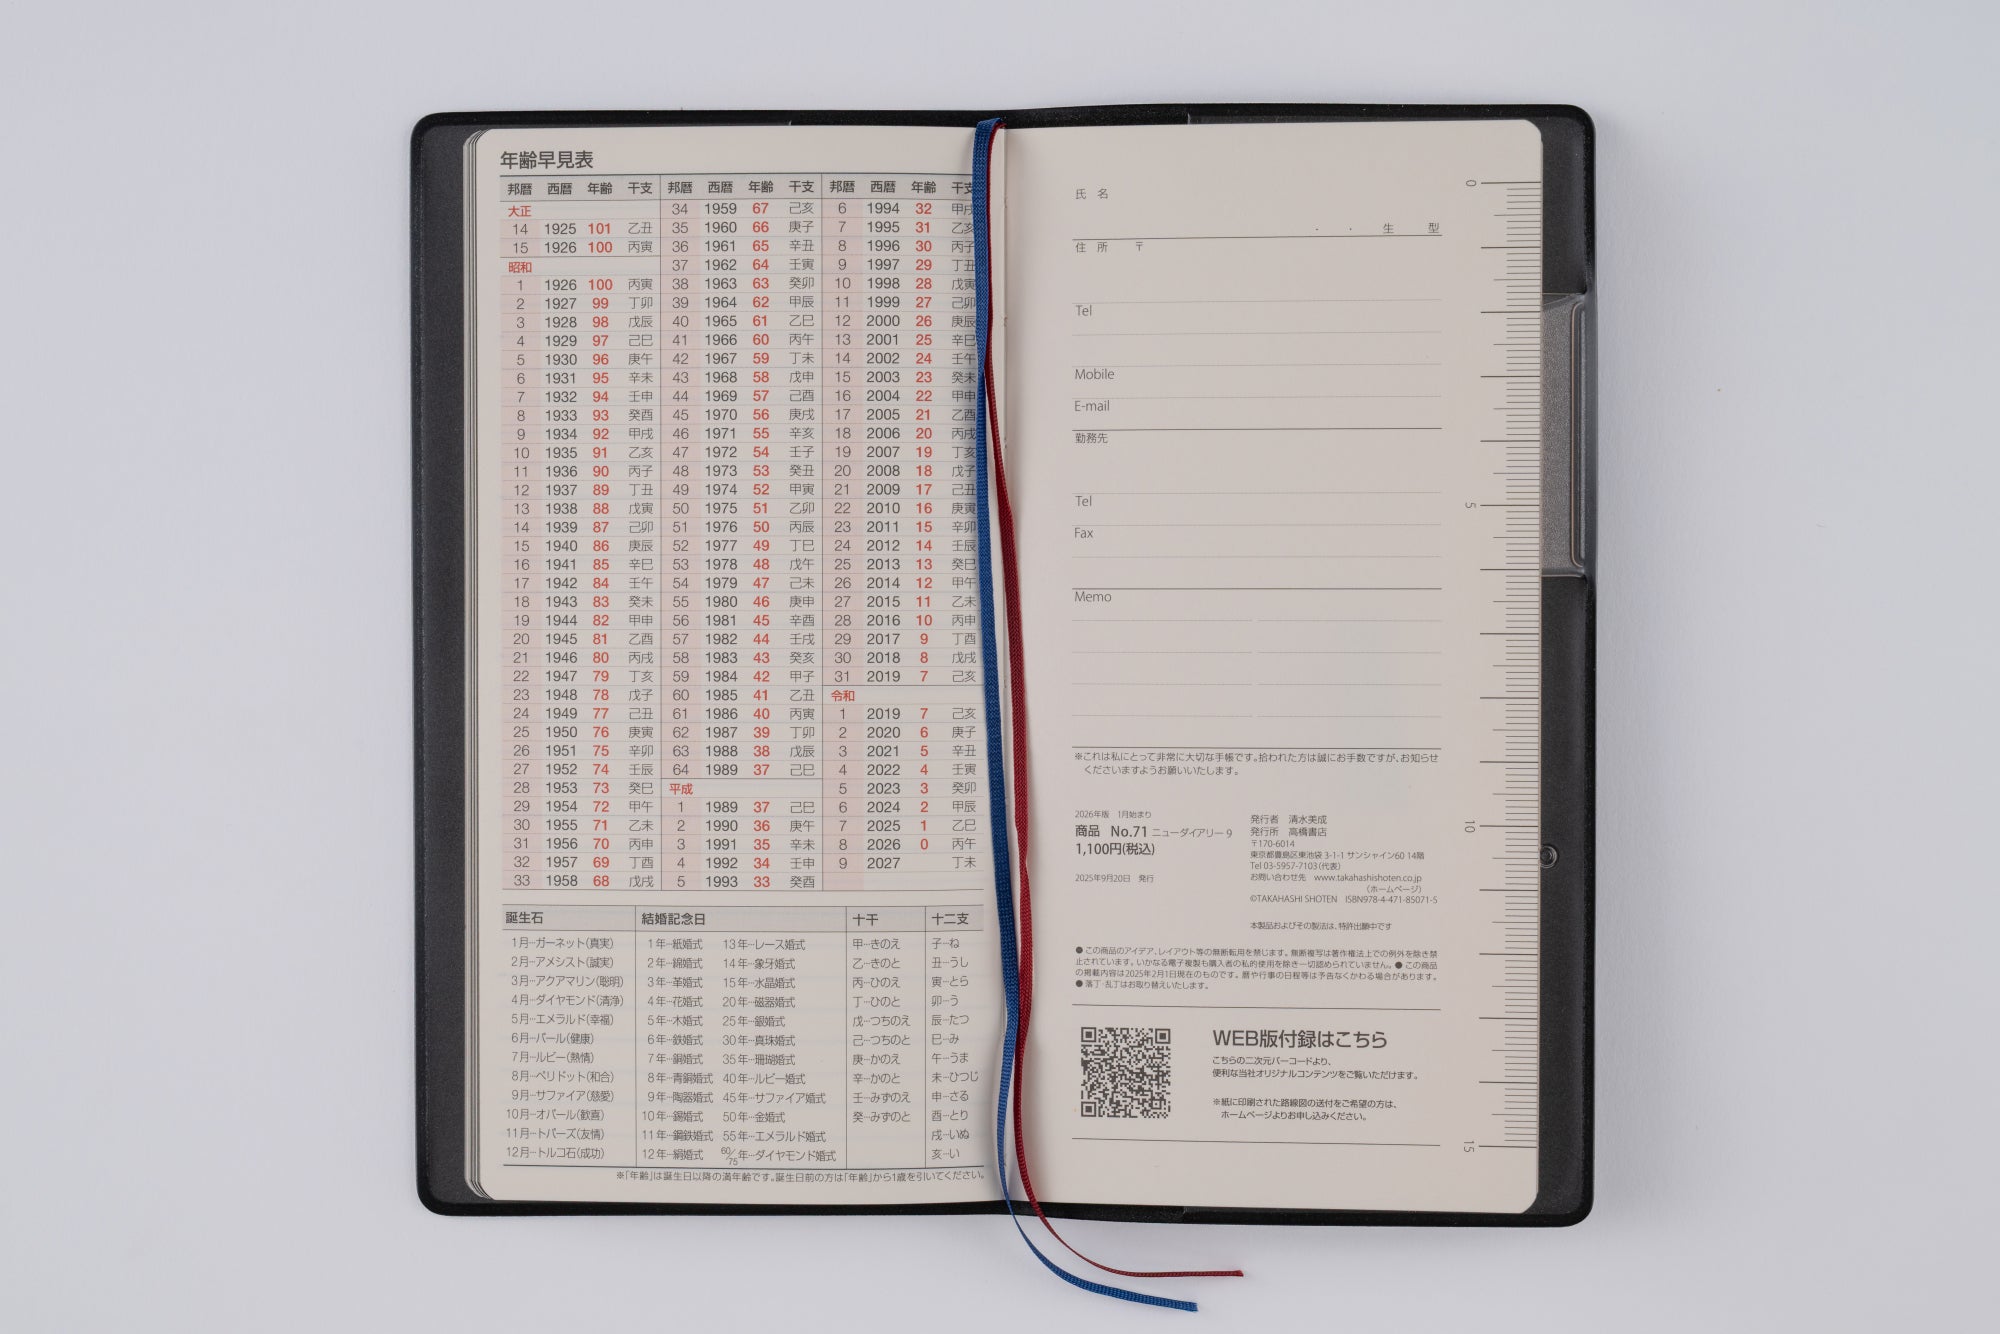 年齢早見表
邦暦 西暦 年齢 干支
大正
14 1925 101 乙丑
15 1926 100 丙寅
昭和
1 1926 100 丙寅
2 1927 99 丁卯
3 1928 98 戊辰
4 1929 97 己巳
5 1930 96 庚午
6 1931 95 辛未
7 1932 94 壬申
8 1933 93 癸酉
9 1934 92 甲戌
10 1935 91 乙亥
11 1936 90 丙子
12 1937 89 丁丑
13 1938 88 戊寅
14 1939 87 己卯
15 1940 86 庚辰
16 1941 85 辛巳
17 1942 84 壬午
18 1943 83 癸未
19 1944 82 甲申
20 1945 81 乙酉
21 1946 80 丙戌
22 1947 79 丁亥
23 1948 78 戊子
24 1949 77 己丑
25 1950 76 庚寅
26 1951 75 辛卯
27 1952 74 壬辰
28 1953 73 癸巳
29 1954 72 甲午
30 1955 71 乙未
31 1956 70 丙申
32 1957 69 丁酉
33 1958 68 戊戌
邦暦 西暦 年齢 干支
34 1959 67 己亥
35 1960 66 庚子
36 1961 65 辛丑
37 1962 64 壬寅
38 1963 63 癸卯
39 1964 62 甲辰
40 1965 61 乙巳
41 1966 60 丙午
42 1967 59 丁未
43 1968 58 戊申
44 1969 57 己酉
45 1970 56 庚戌
46 1971 55 辛亥
47 1972 54 壬子
48 1973 53 癸丑
49 1974 52 甲寅
50 1975 51 乙卯
51 1976 50 丙辰
52 1977 49 丁巳
53 1978 48 戊午
54 1979 47 己未
55 1980 46 庚申
56 1981 45 辛酉
57 1982 44 壬戌
58 1983 43 癸亥
59 1984 42 甲子
60 1985 41 乙丑
61 1986 40 丙寅
62 1987 39 丁卯
63 1988 38 戊辰
64 1989 37 己巳
平成
1 1989 37 己巳
2 1990 36 庚午
3 1991 35 辛未
4 1992 34 壬申
5 1993 33 癸酉
邦暦 西暦 年齢 干支
6 1994 32 甲戌
7 1995 31 乙亥
8 1996 30 丙子
9 1997 29 丁丑
10 1998 28 戊寅
11 1999 27 己卯
12 2000 26 庚辰
13 2001 25 辛巳
14 2002 24 壬午
15 2003 23 癸未
16 2004 22 甲申
17 2005 21 乙酉
18 2006 20 丙戌
19 2007 19 丁亥
20 2008 18 戊子
21 2009 17 己丑
22 2010 16 庚寅
23 2011 15 辛卯
24 2012 14 壬辰
25 2013 13 癸巳
26 2014 12 甲午
27 2015 11 乙未
28 2016 10 丙申
29 2017 9 丁酉
30 2018 8 戊戌
31 2019 7 己亥
令和
1 2019 7 己亥
2 2020 6 庚子
3 2021 5 辛丑
4 2022 4 壬寅
5 2023 3 癸卯
6 2024 2 甲辰
7 2025 1 乙巳
8 2026 0 丙午
9 2027 丁未
誕生石
1月…ガーネット(真実)
2月…アメシスト(誠実)
3月…アクアマリン(聡明)
4月…ダイヤモンド(清浄)
5月…エメラルド(幸福)
6月…パール(健康)
7月…ルビー(熱情)
8月…ペリドット(和合)
9月…サファイア(慈愛)
10月…オパール(歓喜)
11月…トパーズ(友情)
12月…トルコ石(成功)
結婚記念日
1年…紙婚式 13年…レース婚式
2年…綿婚式 14年…象牙婚式
3年…革婚式 15年…水晶婚式
4年…花婚式 20年…磁器婚式
5年…木婚式 25年…銀婚式
6年…鉄婚式 30年…真珠婚式
7年…銅婚式 35年…珊瑚婚式
8年…青銅婚式 40年…ルビー婚式
9年…陶器婚式 45年…サファイア婚式
10年…錫婚式 50年…金婚式
11年…鋼鉄婚式 55年…エメラルド婚式
12年…絹婚式 60/75年…ダイヤモンド婚式
十干
甲…きのえ
乙…きのと
丙…ひのえ
丁…ひのと
戊…つちのえ
己…つちのと
庚…かのえ
辛…かのと
壬…みずのえ
癸…みずのと
十二支
子…ね
丑…うし
寅…とら
卯…う
辰…たつ
巳…み
午…うま
未…ひつじ
申…さる
酉…とり
戌…いぬ
亥…い
※「年齢」は誕生日以降の満年齢です。誕生日前の方は「年齢」から1歳を引いてください。
氏 名
・ ・ 生 型
住 所 〒
Tel
Mobile
E-mail
勤務先
Tel
Fax
Memo
※これは私にとって非常に大切な手帳です。拾われた方は誠にお手数ですが、お知らせ
くださいますようお願いいたします。
2026年版 1月始まり
商品 No.71 ニューダイアリー 9
1,100円(税込)
2025年9月20日 発行
発行者 清水美成
発行所 高橋書店
〒170-6014
東京都豊島区東池袋 3-1-1 サンシャイン60 14階
Tel 03-5957-7103(代表)
お問い合わせ先 www.takahashishoten.co.jp
(ホームページ)
©TAKAHASHI SHOTEN ISBN978-4-471-85071-5
本製品およびその製法は、特許出願中です
● この商品のアイデア、レイアウト等の無断転用を禁じます。無断複写は著作権法上での例外を除き禁
止されています。いかなる電子複製も購入者の私的使用を除き一切認められていません。● この商品
の掲載内容は2025年2月1日現在のものです。暦や行事の日程等は予告なくかわる場合があります。
● 落丁・乱丁はお取り替えいたします。
WEB版付録はこちら
こちらの二次元バーコードより、
便利な当社オリジナルコンテンツをご覧いただけます。
※紙に印刷された路線図の送付をご希望の方は、
ホームページよりお申し込みください。
0
5
10
15